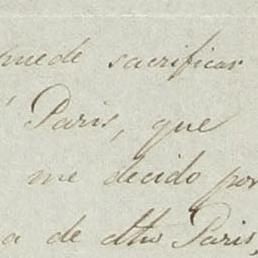 puede sacrificar
á Paris, que
me decido por
a de dho Paris,